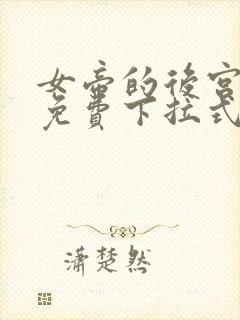 女帝的後宮
免費下拉式
瀟楚然